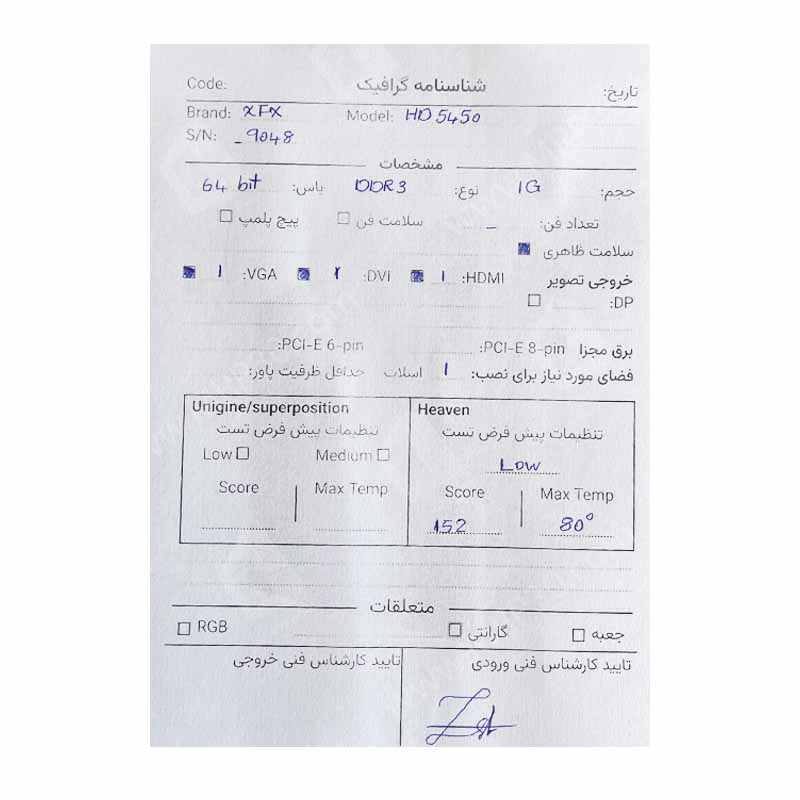 Code: شناسنامه گرافیک تاریخ:
Brand: XFX Model: HD 5450
S/N: _ 9048
مشخصات
حجم: 1G نوع: DDR3 باس: 64 bit
تعداد فن: _ سلامت فن ☐ پیچ پلمپ ☐
سلامت ظاهری ■
خروجی تصویر HDMI: 1 ■ DVI: 1 ■ VGA: 1 ■
DP: ☐
برق مجزا PCI-E 8-pin: PCI-E 6-pin:
فضای مورد نیاز برای نصب: 1 اسلات حداقل ظرفیت پاور:
Unigine/superposition
تنظیمات پیش فرض تست
Low ☐ Medium ☐
Score Max Temp
Heaven
تنظیمات پیش فرض تست
Low
Score Max Temp
152 80°
متعلقات
جعبه ☐ گارانتی ☐ RGB ☐
تایید کارشناس فنی ورودی تایید کارشناس فنی خروجی